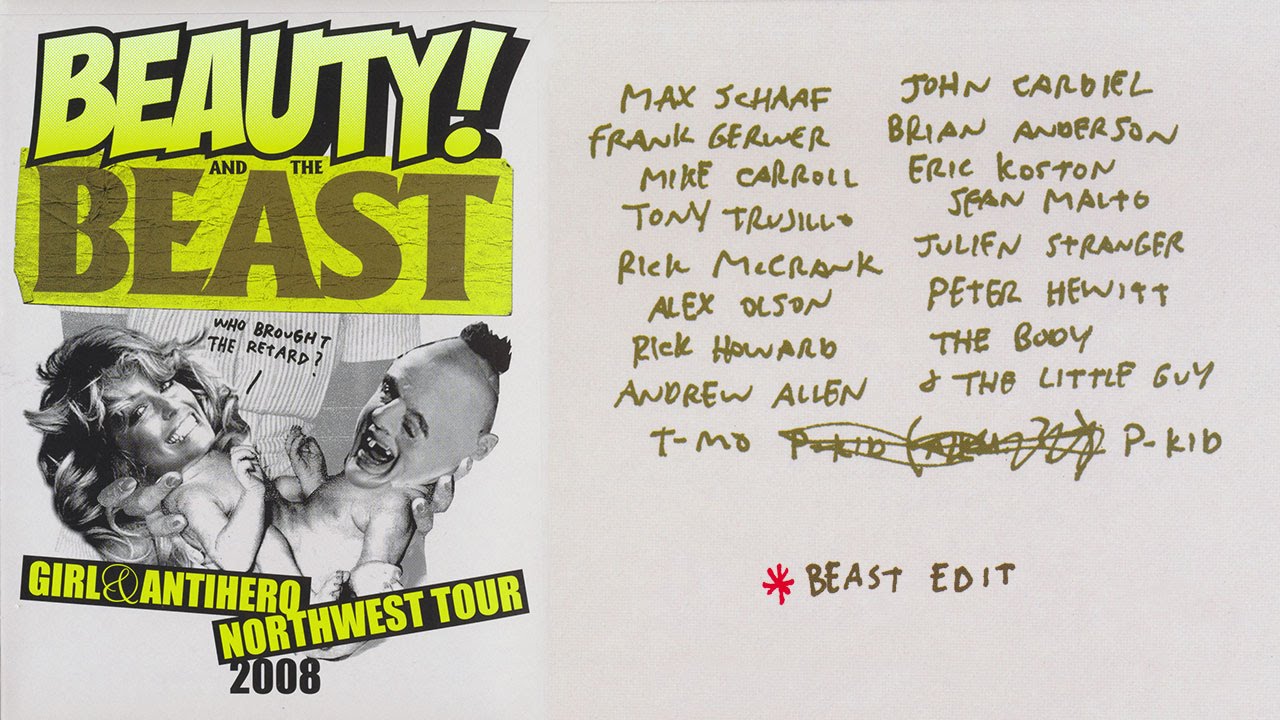 BEAUTY!
AND THE
BEAST
WHO BROUGHT
THE RETARD?
GIRL & ANTIHERO
NORTHWEST TOUR
2008
MAX SCHAAF
FRANK GERWER
MIKE CARROLL
TONY TRUJILLO
RICK McCRANK
ALEX OLSON
RICK HOWARD
ANDREW ALLEN
JOHN CARDIEL
BRIAN ANDERSON
ERIC KOSTON
SEAN MALTO
JULIEN STRANGER
PETER HEWITT
THE BODY
& THE LITTLE GUY
T-MO P-KID P-KID
* BEAST EDIT